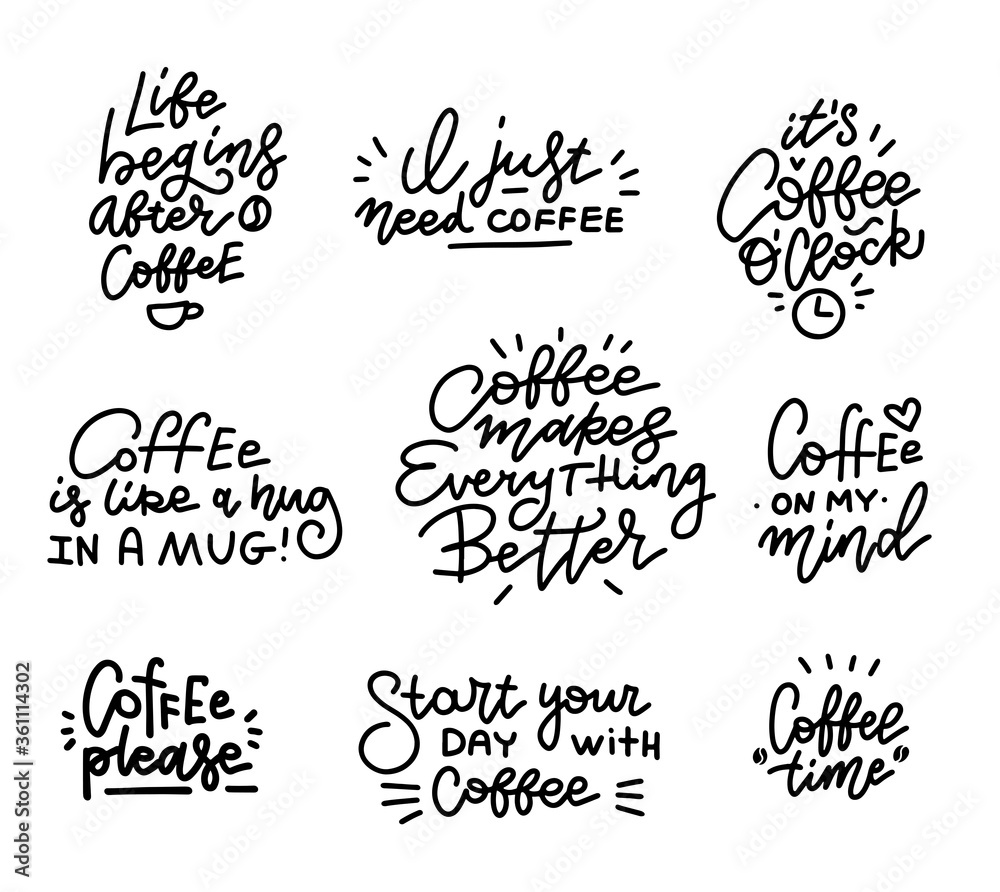 Life
begins
after
Coffee
I just
need COFFEE
it's
Coffee
O'Clock
Coffee
is like a hug
IN A MUG!
Coffee
makes
Everything
Better
Coffee
ON MY
mind
Coffee
please
Start your
DAY with
Coffee
Coffee
time
Adobe Stock | #361114302